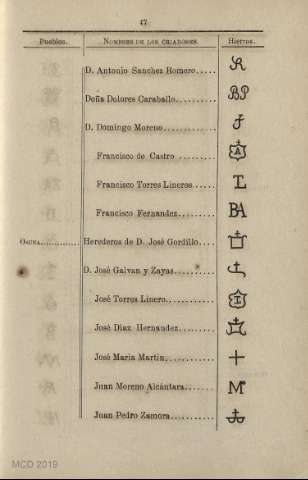 47
Pueblos. NOMBRES DE LOS CRIADORES. Hierros.
D. Antonio Sanchez Romero..... R
Doña Dolores Caraballo.......... BP
D. Domingo Moreno............. f
Francisco de Castro .......... A
Francisco Torres Lineros...... TL
Francisco Fernandez.......... BA
Osuna............ Herederos de D. José Gordillo....
D. José Galvan y Zayas..........
José Torres Linero............
José Diaz Hernandez.........
José Maria Martin............
Juan Moreno Alcántara....... M
Juan Pedro Zamora...........
MCD 2019